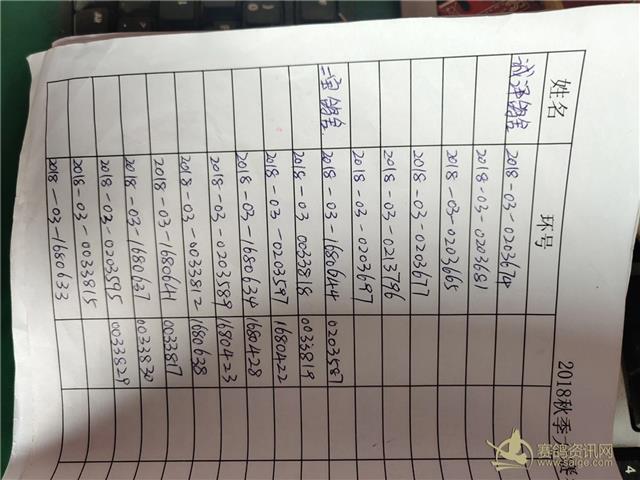 2018秋季
姓名 环号
2018-03-0203674
2018-03-0203681
2018-03-0203665
2018-03-0203677
2018-03-0213796
2018-03-0203687
鸽舍 2018-03-1680644 0203587
2018-03 0033818 0033819
2018-03-0203597 1680422
2018-03-1680634 1680428
2018-03-0203588 1680423
2018-03-0033812 1680638
2018-03-1680641 0033817
2018-03-1680637 0033830
2018-03-0203595 0033829
2018-03-0033815
2018-03-1680633
赛鸽资讯网
www.saige.com
4